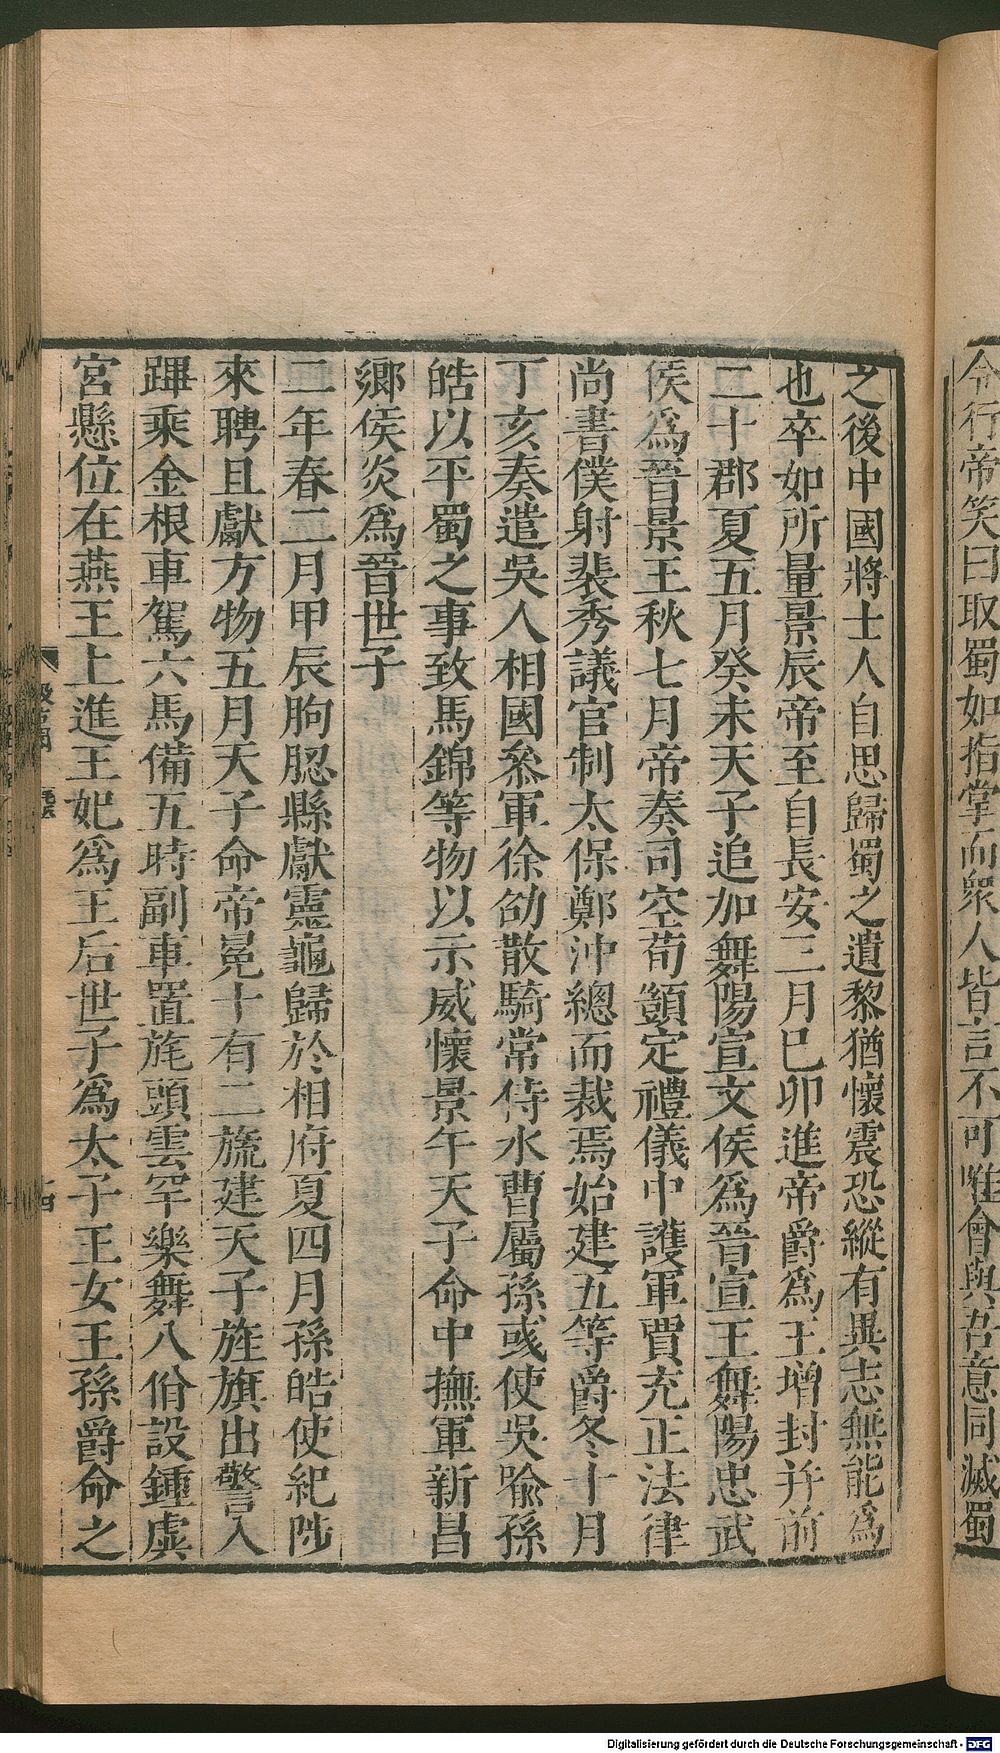 令行帝笑曰取蜀如指掌而衆人皆言不可唯會與吾意同滅蜀
之後中國將士人自思歸蜀之遺黎猶懷震恐縱有異志無能爲
也卒如所量景辰帝至自長安三月巳卯進帝爵爲王增封并前
二十郡夏五月癸未天子追加舞陽宣文侯爲晉宣王舞陽忠武
侯爲晉景王秋七月帝奏司空荀顗定禮儀中護軍賈充正法律
尚書僕射裴秀議官制太保鄭沖總而裁焉始建五等爵冬十月
丁亥奏遣吳人相國參軍徐劭散騎常侍水曹屬孫彧使吳喻孫
皓以平蜀之事致馬錦等物以示威懷景午天子命中撫軍新昌
鄉侯炎爲晉世子
二年春二月甲辰朐䏰縣獻靈龜歸於相府夏四月孫皓使紀陟
來聘且獻方物五月天子命帝冕十有二旒建天子旌旗出警入
蹕乘金根車駕六馬備五時副車置旄頭雲罕樂舞八佾設鍾虡
宮懸位在燕王上進王妃爲王后世子爲太子王女王孫爵命之
Digitalisierung gefördert durch die Deutsche Forschungsgemeinschaft - DFG